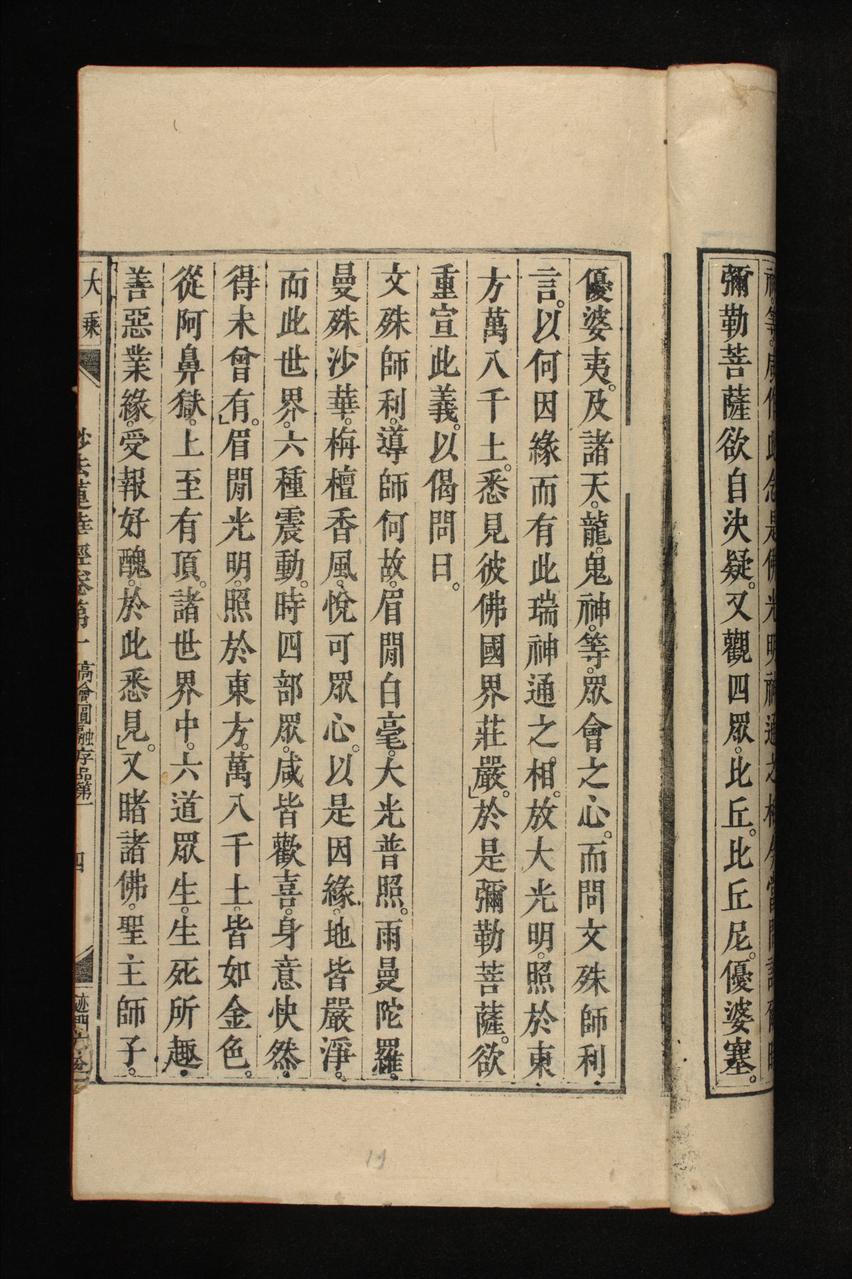 彌勒菩薩欲自決疑。又觀四眾。比丘。比丘尼。優婆塞。
優婆夷。及諸天。龍。鬼神。等。眾會之心。而問文殊師利。
言。以何因緣而有此瑞神通之相。放大光明。照於東
方萬八千土。悉見彼佛國界莊嚴。」於是彌勒菩薩。欲
重宣此義。以偈問曰。
文殊師利。導師何故。眉閒白毫。大光普照。雨曼陀羅。
曼殊沙華。栴檀香風。悅可眾心。以是因緣。地皆嚴淨。
而此世界。六種震動。時四部眾。咸皆歡喜。身意快然。
得未曾有。」眉閒光明。照於東方。萬八千土。皆如金色。
從阿鼻獄。上至有頂。諸世界中。六道眾生。生死所趣。
善惡業緣。受報好醜。於此悉見。」又睹諸佛。聖主師子。
大乘 妙法蓮華經卷第一 序品第一 四
19